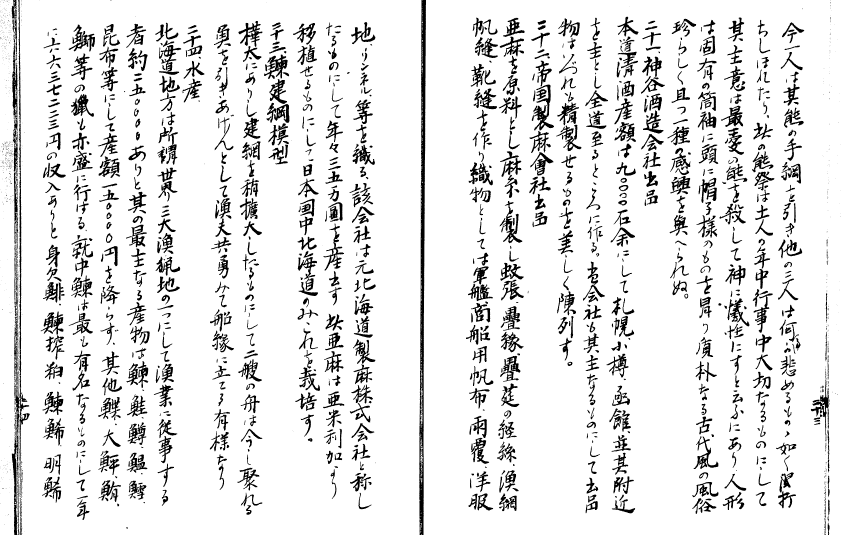 今一人は其熊の手綱を引き他の三人は何か悲めるもの如く罵打
ちしほれたり、此の熊祭は土人の年中行事中大切なるものにして
其主意は最愛の熊を殺して神に犠性にすと云ふにあり人形
は固有の筒袖に頭に帽子様のものを昇り質朴なる古代風の風俗
珍らしく且つ一種の感触を与へられぬ。
二十一神谷酒造会社出品
本道清酒産額は九〇〇〇〇石余にして札幌、小樽、函館並其附近
を主とし全道至るところに作る。当会社も其主なるものにして出品
物はいづれも精製せるものを美しく陳列す。
二十二帝国製麻会社出品
亜麻を原料とし麻糸を製し蚊張、畳縁、畳莚の経絲、漁網
帆縫、靴縫を作り織物としては軍艦商船用帆布、雨覆、洋服
地、リンネル等を織る、該会社は元北海道製麻株式会社と称し
たるものにして年々三五万圓を産出す 此亜麻は亜米利加より
移植せるものにして日本国中北海道のみこれを栽培す。
二十三、鰊建網模型
樺太にありし建網を稍擴大したるものにして二艘の舟は今し聚れる
魚を引きあげんとして漁夫共勇みて船縁に立てる有様なり
二十四水産
北海道地方は所謂世界三大漁猟地の一つにして漁業に従事する
者約二五〇〇〇〇ありと其の最主なる産物は鰊、鮭、鱒、鰮、鱈、
昆布等にして産額一五〇〇〇〇円を降らず、其他鰈、大鮃、鮪、
鰤等の獵も亦盛に行はる、就中鰊は最も有名なるものにして一年
に六六三七二三三円の収入ありと身欠鯡、鰊搾粕、鰊鯑、明鯑